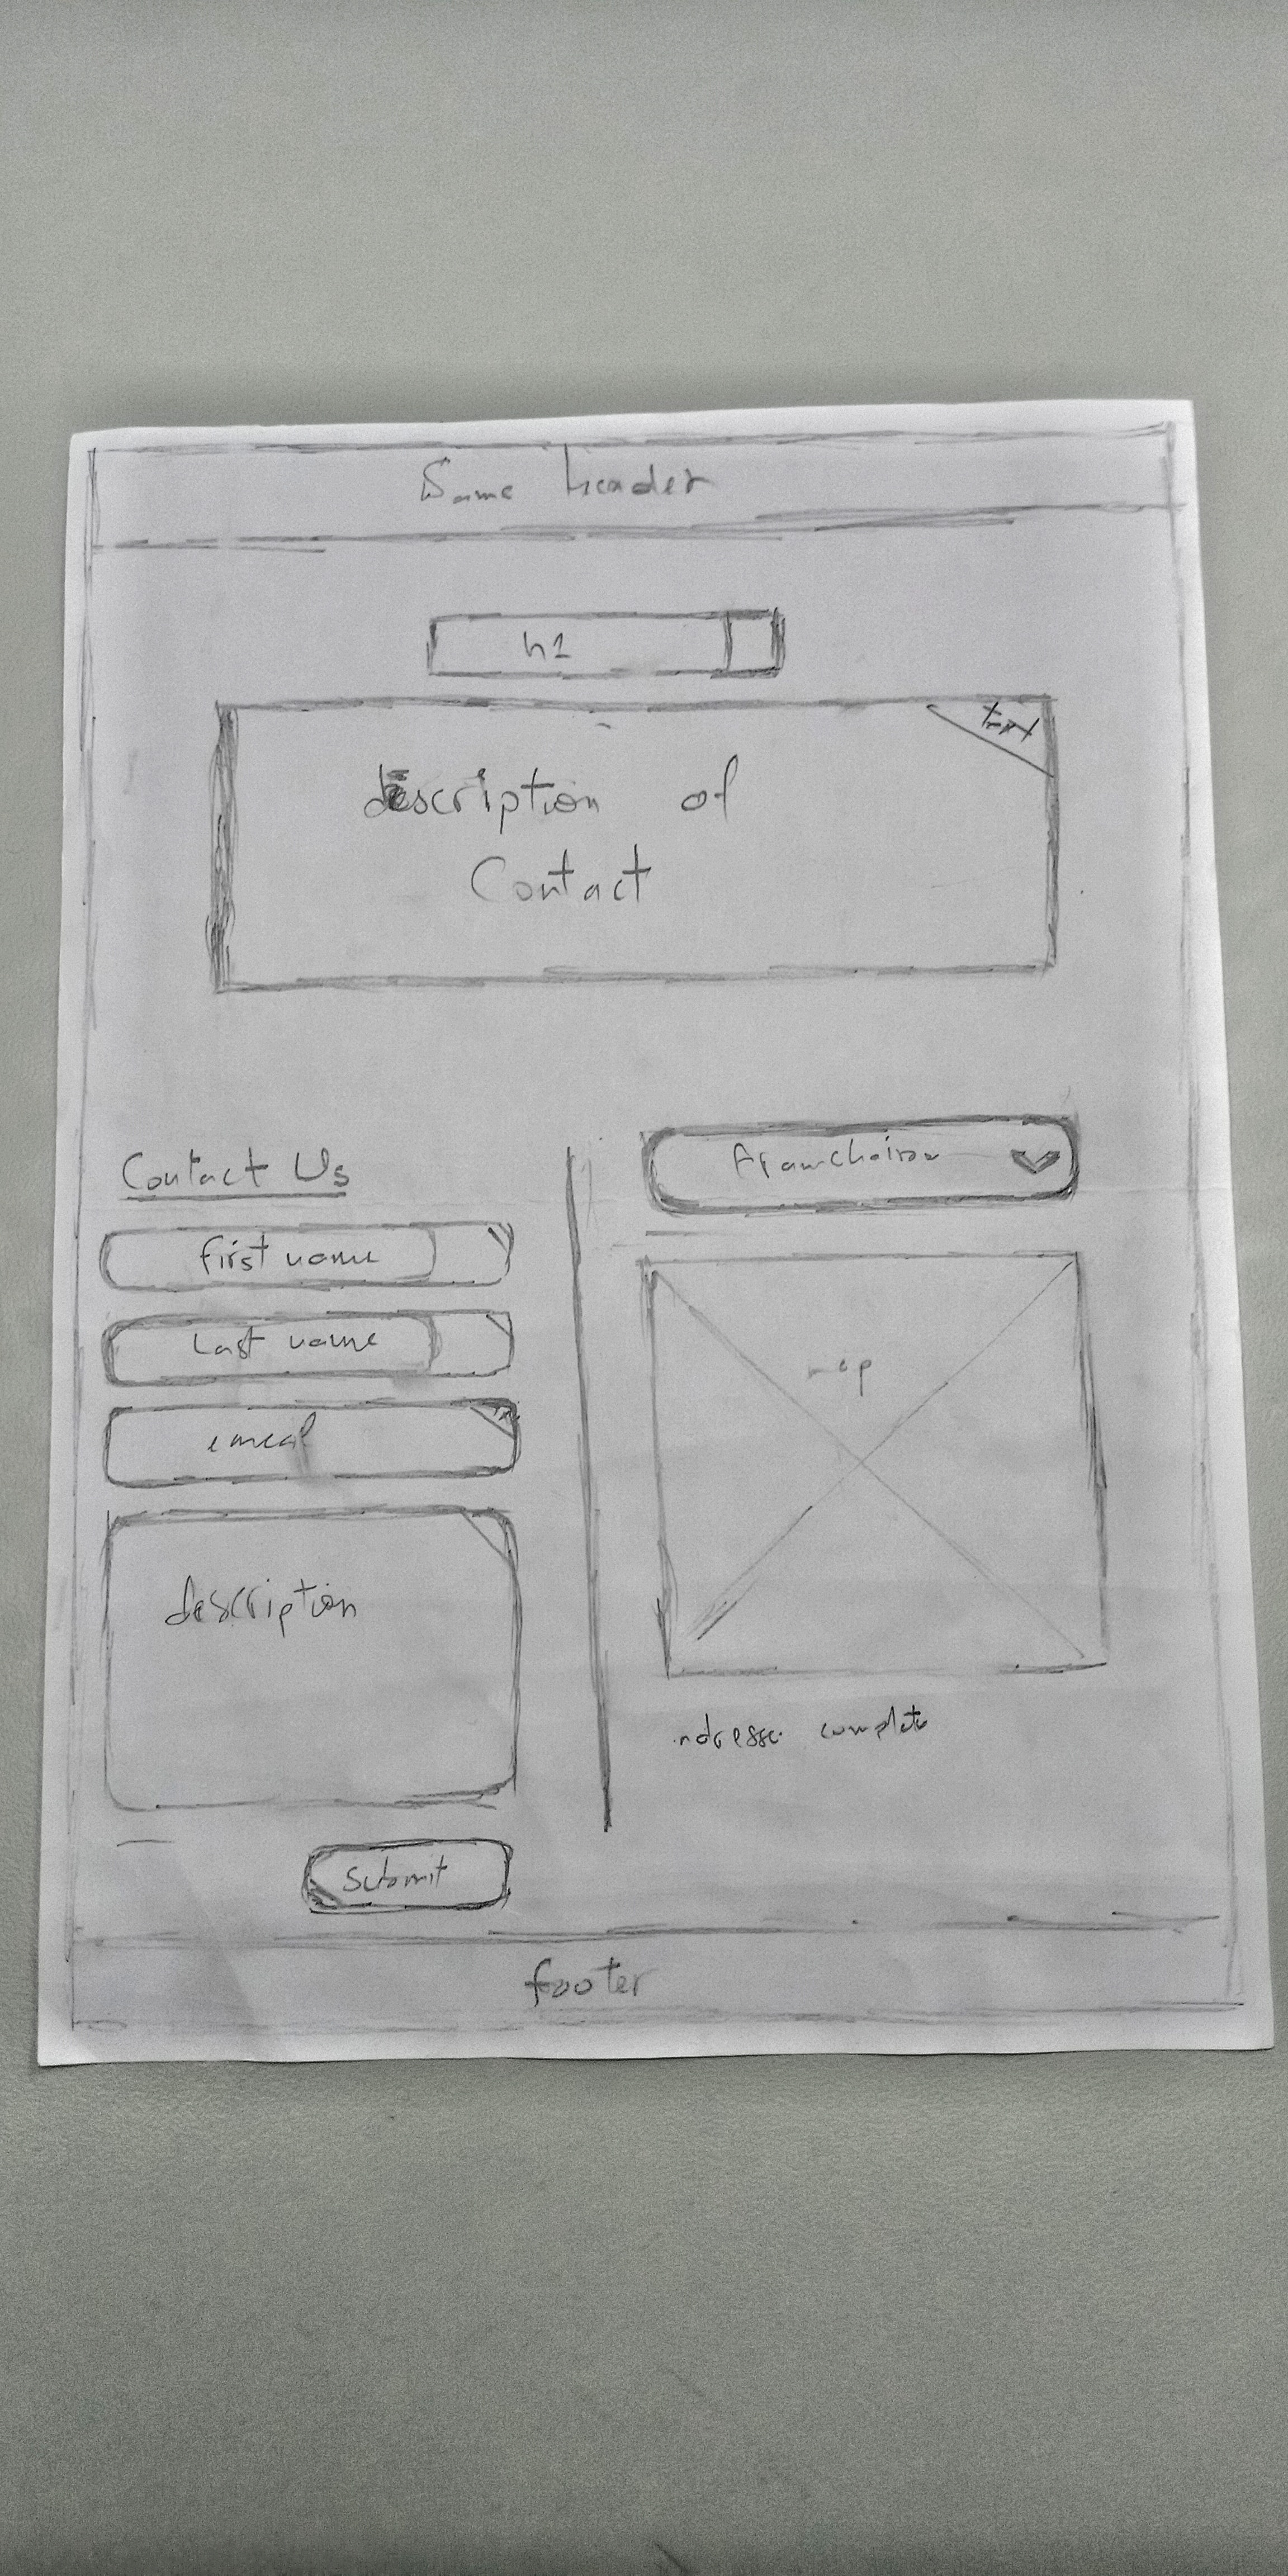 Same header
h1
text
description of
Contact
Contact Us
first name
Last name
email
description
Submit
map
adresse complete
footer